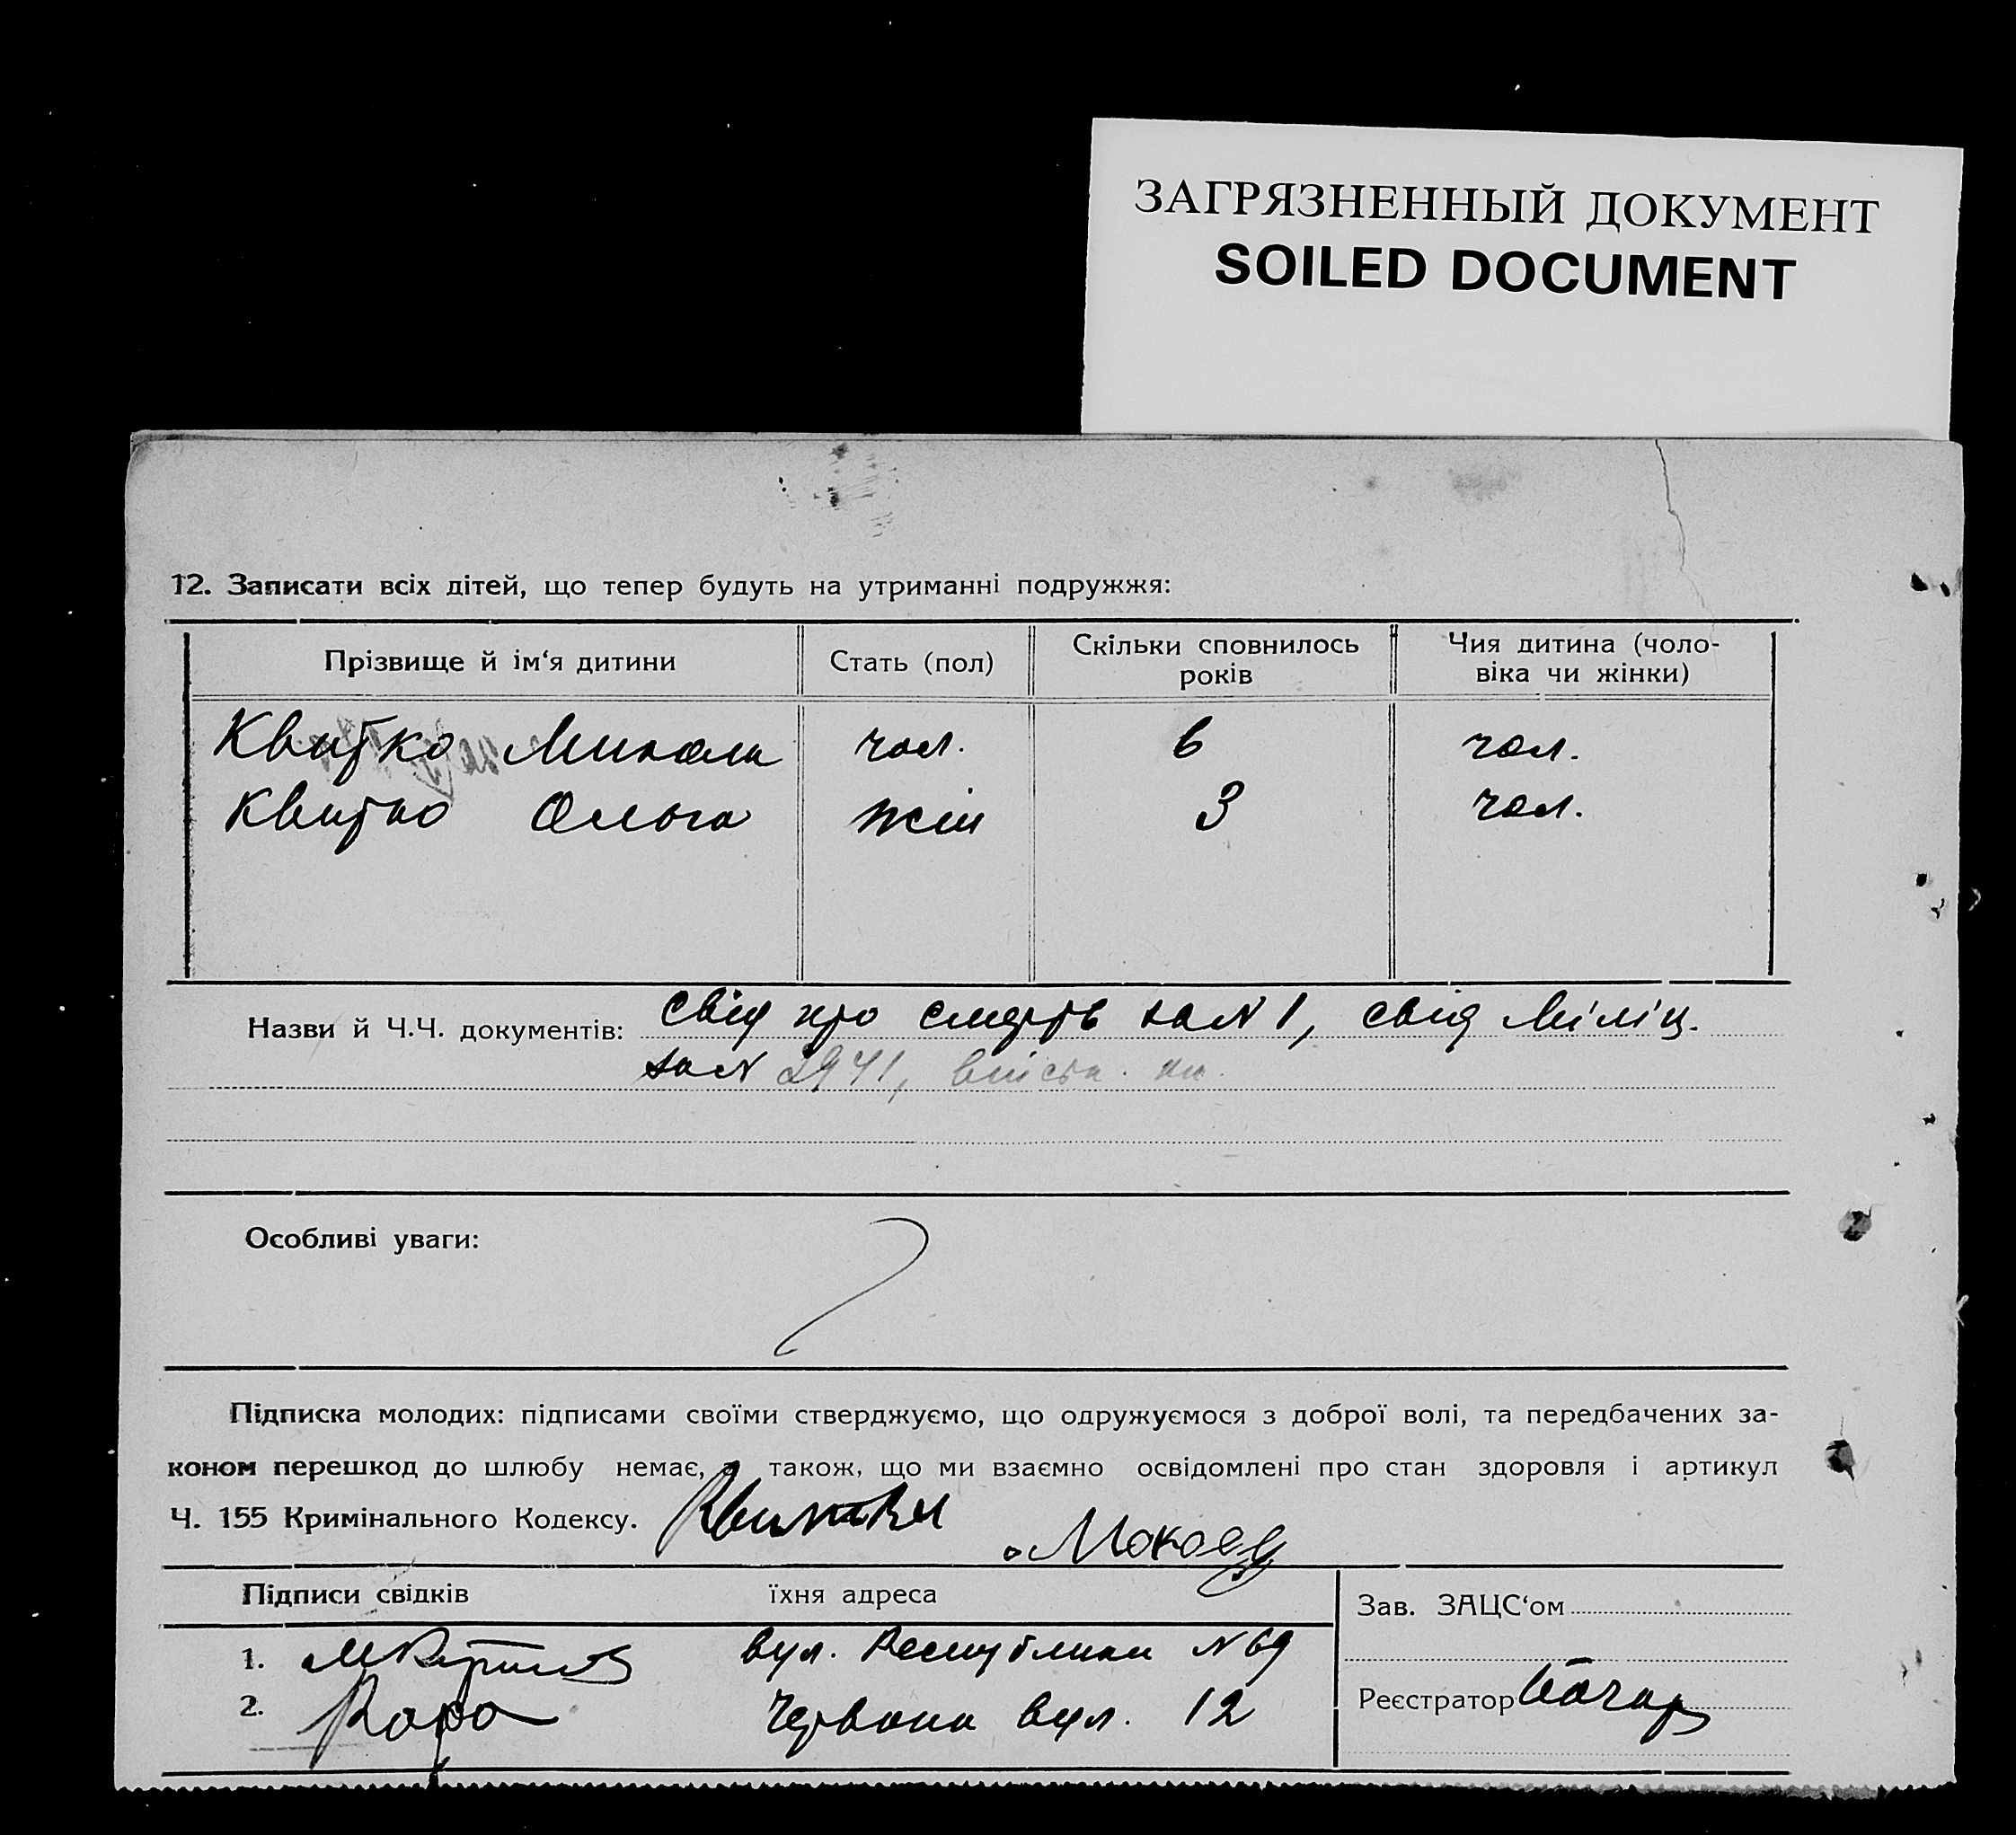 ЗАГРЯЗНЕННЫЙ ДОКУМЕНТ
SOILED DOCUMENT
12. Записати всіх дітей, що тепер будуть на утриманні подружжя:
Прізвище й ім‘я дитини Стать (пол) Скільки сповнилось років Чия дитина (чоло-віка чи жінки)
Квитко Микола чол. 6 чол.
Квитко Ольга жін 3 чол.
Назви й Ч.Ч. документів: свід про смерть за N 1, свід Міліц.
за N 2941,
Особливі уваги:
Підписка молодих: підписами своїми стверджуємо, що одружуємося з доброї волі, та передбачених за-
коном перешкод до шлюбу немає, а також, що ми взаємно освідомлені про стан здоровля і артикул
Ч. 155 Кримінального Кодексу.
Підписи свідків їхня адреса Зав. ЗАЦС‘ом
1. вул. Республики N 69
2. Червона вул. 12 Реєстратор